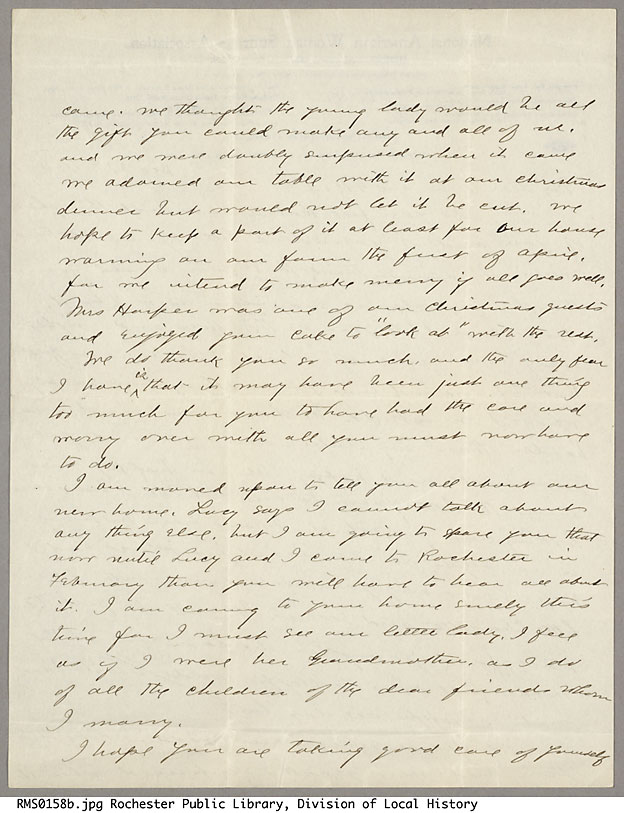 came. We thought the young lady would be all
the gift you could make any and all of us.
and we were doubly surprised when it came
we adorned our table with it at our christmas
dinner but would not let it be cut. We
hope to keep a part of it at least for our house
warming on our farm the first of april.
for we intend to make merry if all goes well.
Mrs Harper was one of our christmas guests
and enjoyed your cake to "look at" with the rest.
We do thank you so much, and the only fear
I have is that it may have been just one thing
too much for you to have had the care and
worry over with all you must now have
to do.
I am moved upon to tell you all about our
new home. Lucy says I cannot talk about
any thing else, but I am going to spare you that
now until Lucy and I come to Rochester in
February then you will have to hear all about
it. I am coming to your home surely this
time for I must see our little lady. I feel
as if I were her Grandmother, as I do
of all the children of the dear friends whom
I marry.
I hope you are taking good care of yourself
RMS0158b.jpg Rochester Public Library, Division of Local History